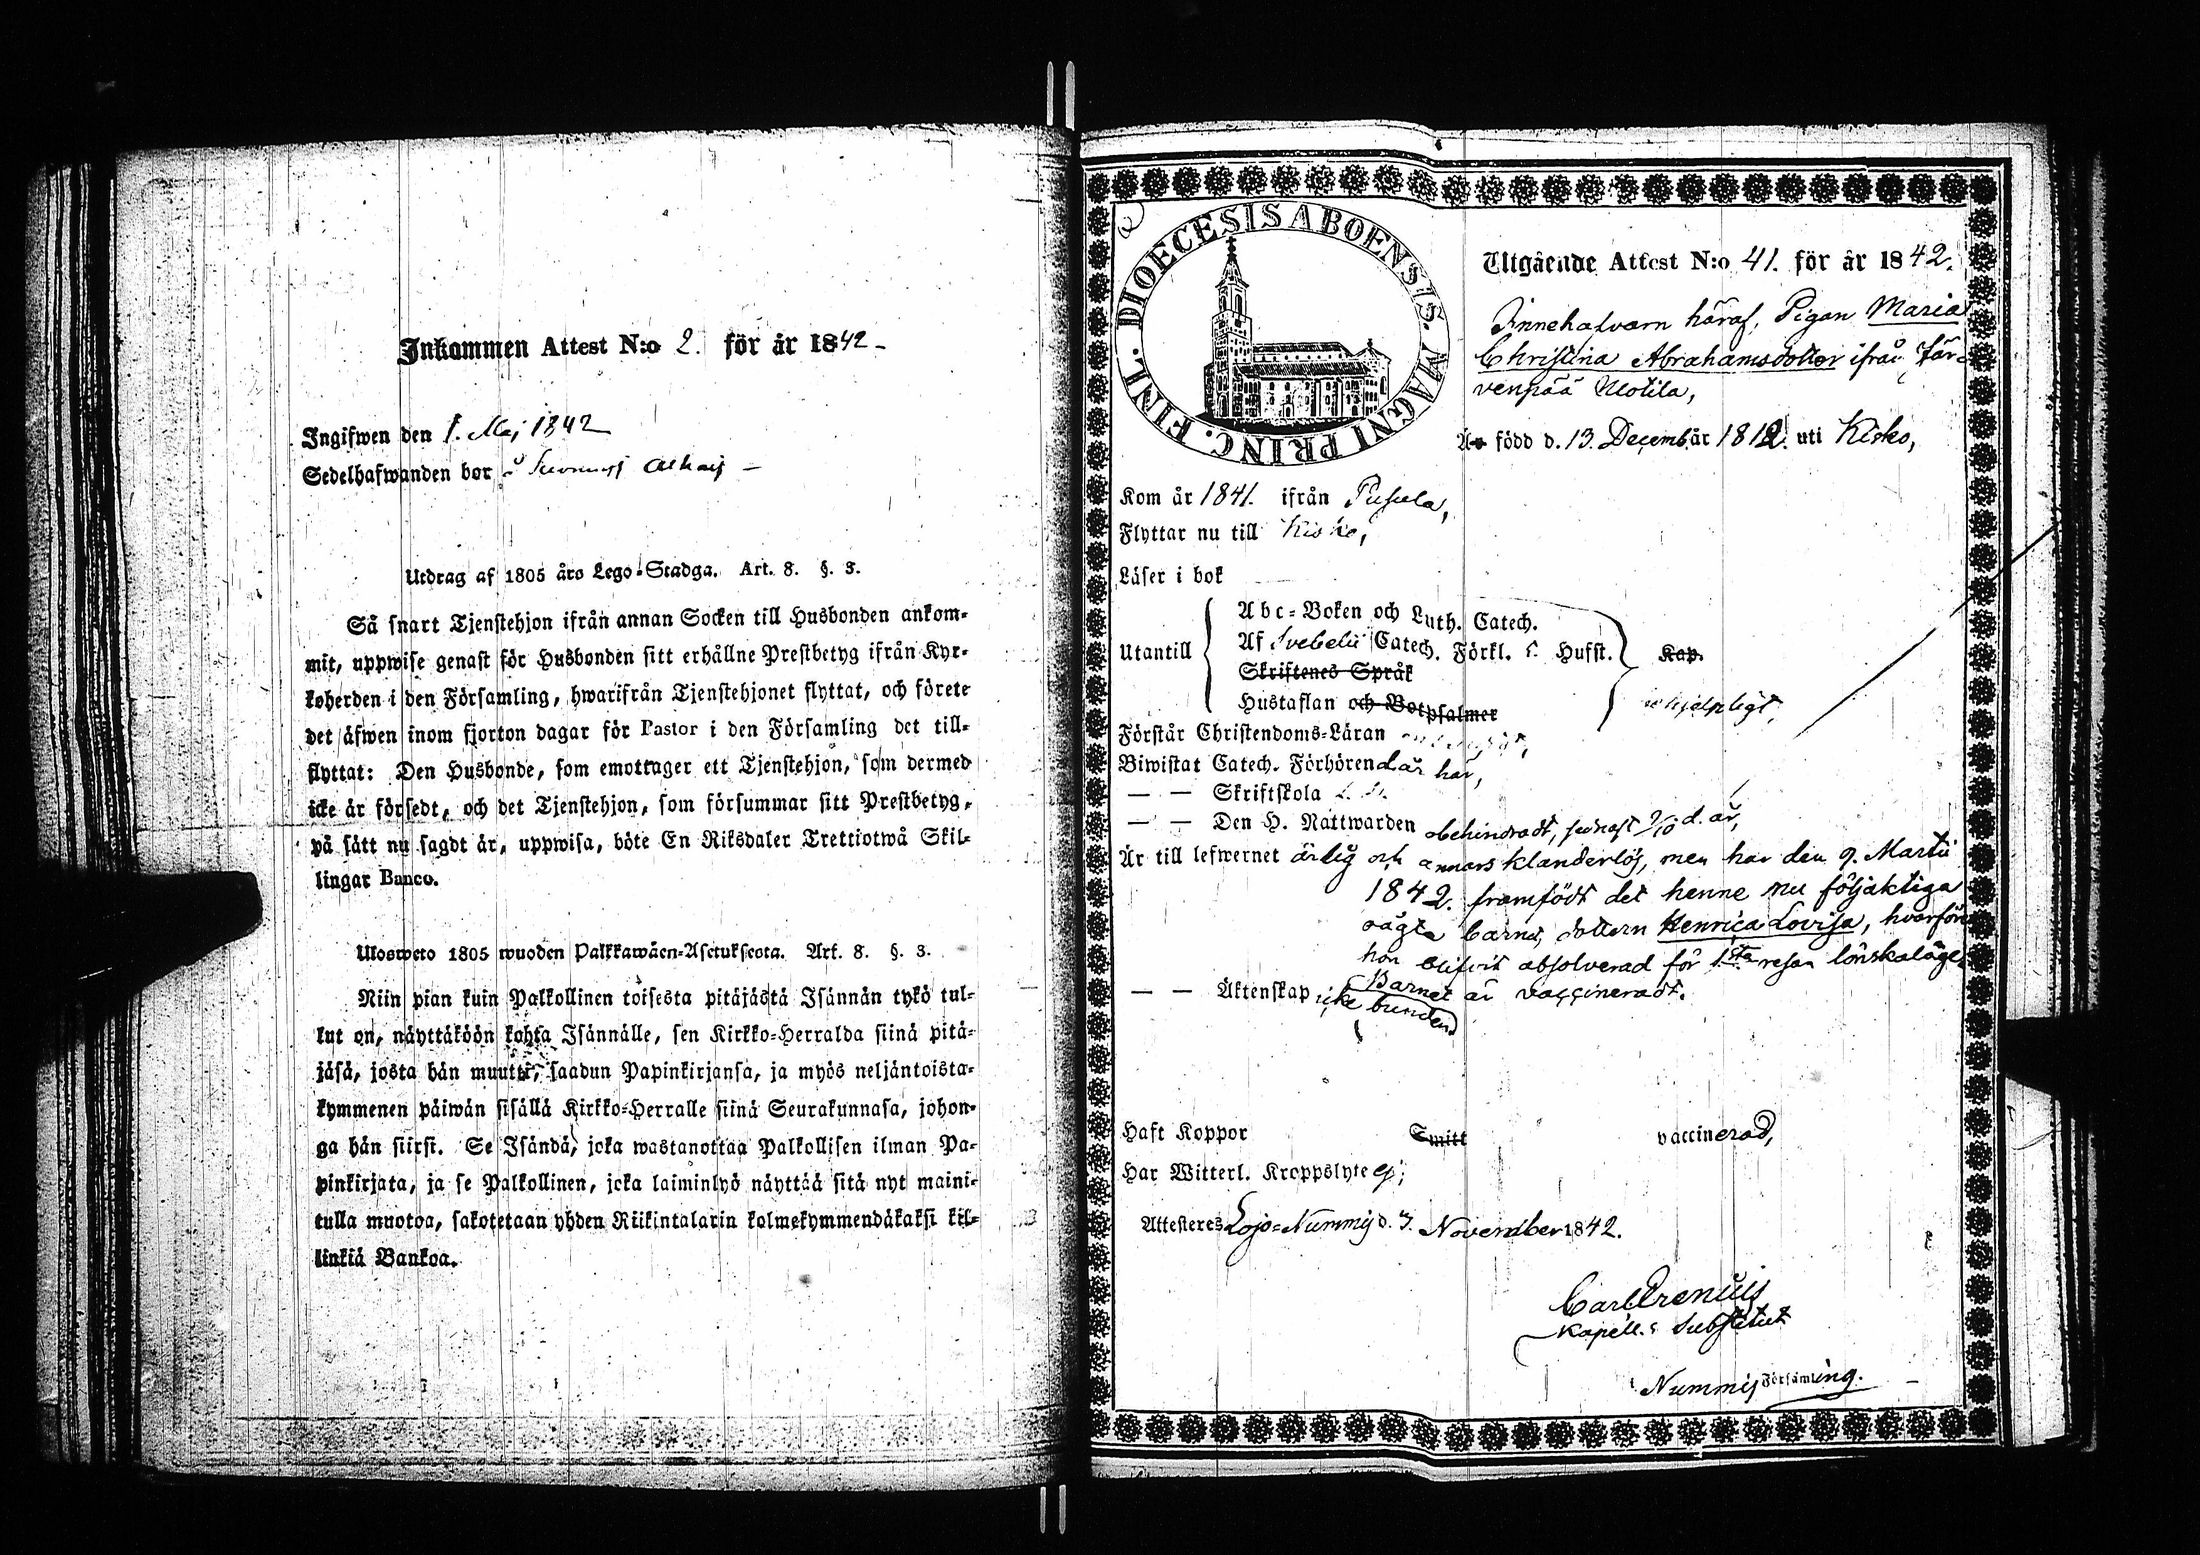 Inkommen Attest N:o 2. för år 1842 -
Ingifwen den 1. Maj 1842
Sedelhafwanden bor
Utdrag af 1805 års Lego-Stadga. Art. 8. §. 3.
Så snart Tjenstehjon ifrån annan Socken till Husbonden ankom-
mit, uppwise genast för Husbonden sitt erhållne Prestbetyg ifrån Kyr-
koherden i den Församling, hwarifrån Tjenstehjonet flyttat, och förete
det äfwen inom fjorton dagar för Pastor i den Församling det till-
flyttat: Den Husbonde, som emottager ett Tjenstehjon, som dermed
icke är försedt, och det Tjenstehjon, som försummar sitt Prestbetyg,
på sätt nu sagdt är, uppwisa, böte En Riksdaler Trettiotwå Skil-
lingar Banco.
Ulosweto 1805 wuoden Palkkawäen-Asetuksesta. Art. 8. §. 3.
Niin pian kuin Palkollinen toisesta pitäjästä Isännän tykö tul-
lut on, näyttäköön kohta Isännälle, sen Kirkko-Herralda siinä pitä-
jäsä, josta hän muutti, saadun Papinkirjansa, ja myös neljäntoista-
kymmenen päiwän sisällä Kirkko-Herralle siinä Seurakunnasa, johon-
ga hän siirsi. Se Isändä, joka wastanottaa Palkollisen ilman Pa-
pinkirjata, ja se Palkollinen, joka laiminlyö näyttää sitä nyt maini-
tulla muotoa, sakotetaan yhden Riikintalarin kolmekymmendäkaksi kil-
linkiä Bankoa.
DIOECESIS ABOENSIS. MAGNI PRINC. FINL.
Utgående Attest N:o 41. för år 1842.
Innehafvarn häraf, Pigan Maria
Christina Abrahamsdotter ifrån Jär-
venpää Uotila,
Är född d. 13. Decembär 1812. uti Kisko,
Kom år 1841. ifrån Pusula,
Flyttar nu till Kisko,
Läser i bok
Abc-Boken och Luth. Catech.
Utantill Af Svebelii Catech. Förkl. Hufst. Kap.
Skriftenes Språk
Hustaflan och Botpsalmer
Förstår Christendoms-Läran
Biwistat Catech. Förhören d. år här,
— — Skriftskola
— — Den H. Nattwarden obehindradt, senast d. år,
Är till lefwernet ärlig och annars klanderlös, men har den 9. Martii
1842. framfödt det henne nu följaktiga
oägta barnet, dottern Henrica Lovisa, hvarföre
hon blifvit absolverad för 1sta resan lönskaläge.
Barnet är vaccineradt.
— — Äktenskap icke bunden
Haft Koppor Smitt vaccinerad,
Har Witterl. Kroppslyte ej;
Attesteres Lojo-Nummis d. 7. November 1842.
Carl Arenius
Kapell.s Substitut
Nummis Församling.